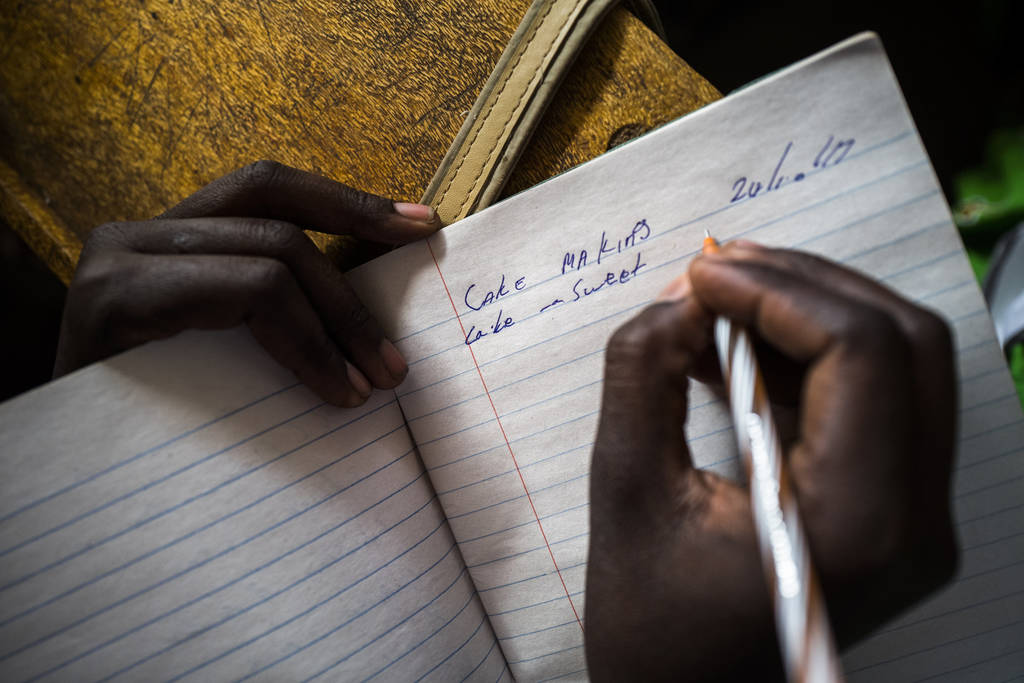 CAKE MAKING
Cake → Sweet